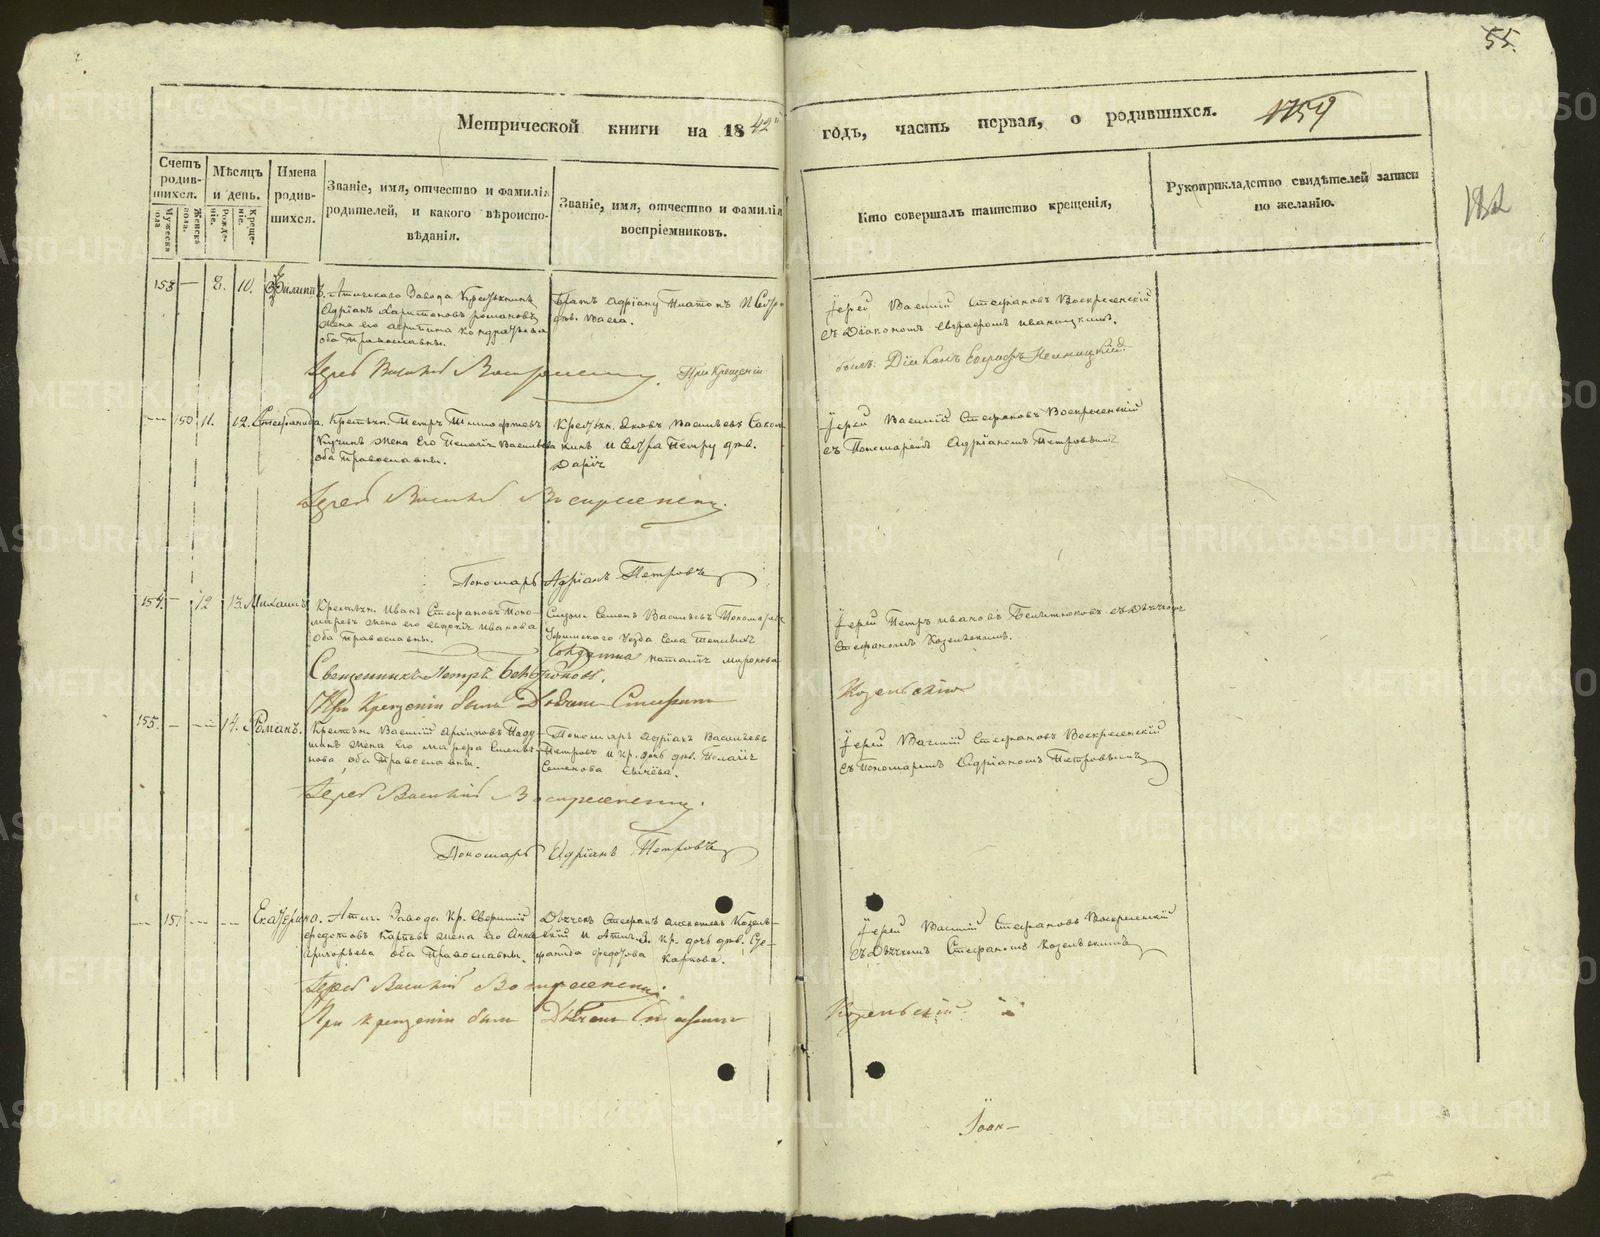 55.
Метрической книги на 1842 годъ, часть первая, о родившихся. 1759
182
Счетъ родившихся.
Мужеска пола
Женска пола.
Мѣсяцъ и день.
Рожденіе.
Крещеніе.
Имена родившихся.
Званіе, имя, отчество и фамилія родителей, и какого вѣроисповѣданія.
Званіе, имя, отчество и фамилія воспріемниковъ.
Кто совершалъ таинство крещенія,
Рукоприкладство свидѣтелей записи по желанію.
153 — 8. 10. Филиппъ.
Атигскаго Завода Крестьянинъ
Адріанъ Харитоновъ Романовъ
жена его Агрипина Кондратьева
оба Православны.
Братъ Адріану Платонъ и Сестра
дѣв. Васса.
Іерей Василий Стефановъ Воскресенскій
съ Діакономъ Евграфомъ Иваницкимъ.
Іерей Василий Воскресенскій. При Крещеніи
былъ: Діаконъ Евграфъ Иваницкій.
— 150 11. 12. Стефанида.
Крестьян. Петръ Тимофеевъ
жена Его Пелагія Васильева
оба Православны.
Крестьян. Яковъ Васильевъ
и Сестра Петру дѣв.
Дарія
Іерей Василий Стефановъ Воскресенскій
съ Пономаремъ Адріаномъ Петровымъ
Іерей Василий Воскресенскій.
Пономарь Адріанъ Петровъ
154. — 12 13. Михаилъ
Крестьян. Иванъ Стефановъ Пономаревъ жена его Евдокія Иванова
оба Православны.
Семенъ Васильевъ Пономаревъ
Уѣзда Села
Солдатка Наталія Миронова
Іерей Петръ Ивановъ съ Дьячкомъ
Стефаномъ Козельскимъ.
Священникъ Петръ
При Крещеніи былъ Дьячекъ Стефанъ
Козельскій
155. — — 14. Романъ.
Крестьян. Василій Архиповъ
жена Его
оба Православны.
Пономарь Адріанъ Васильевъ
Петровъ и Кр. дочь дѣв. Пелагія
Семенова Сычёва.
Іерей Василий Стефановъ Воскресенскій
съ Пономаремъ Адріаномъ Петровымъ
Іерей Василий Воскресенскій.
Пономарь Адріанъ Петровъ
— 151 — — Екатерина.
Атиг. Завода Кр.
Федотовъ Карповъ жена его Анна
Григорьева оба Православны.
Дьячекъ Стефанъ Алексѣевъ Козельскій и Атиг. З. Кр. дочь дѣв. Стефанида Федотова Карпова.
Іерей Василий Стефановъ Воскресенскій
съ Дьячкомъ Стефаномъ Козельскимъ
Іерей Василий Воскресенскій.
При крещеніи былъ Дьячекъ Стефанъ
Козельскій
METRIKI.GASO-URAL.RU